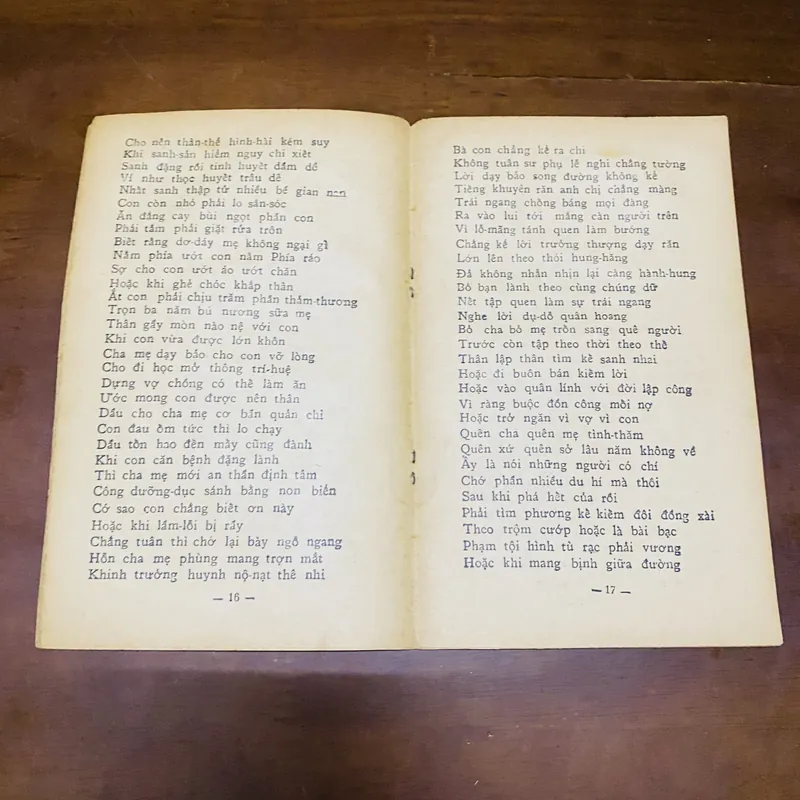 Cho nên thân-thể hình-hài kém suy
Khi sanh-sản hiểm nguy chi xiết
Sanh đặng rồi tinh huyết dầm dề
Ví như thọc huyết trâu dê
Nhất sanh thập tử nhiều bề gian nan
Con còn nhỏ phải lo săn-sóc
Ăn đắng cay bùi ngọt phần con
Phải tắm phải giặt rửa trôn
Biết rằng dơ-dáy mẹ không ngại gì
Nằm phía ướt con nằm Phía ráo
Sợ cho con ướt áo ướt chăn
Hoặc khi ghẻ chóc khắp thân
Ắt con phải chịu trăm phần thảm-thương
Trọn ba năm bú nương sữa mẹ
Thân gầy mòn nào nệ với con
Khi con vừa được lớn khôn
Cha mẹ dạy bảo cho con vỡ lòng
Cho đi học mở thông trí-huệ
Dựng vợ chồng có thể làm ăn
Ước mong con được nên thân
Dầu cho cha mẹ cơ bần quản chi
Con đau ốm tức thì lo chạy
Dầu tốn hao đến mấy cũng đành
Khi con căn bệnh đặng lành
Thì cha mẹ mới an thần định tâm
Công dưỡng-dục sánh bằng non biển
Cớ sao con chẳng biết ơn này
Hoặc khi lầm-lỗi bị rầy
Chẳng tuân thì chớ lại bày ngỗ ngang
Hỗn cha mẹ phùng mang trợn mắt
Khinh trưởng huynh nộ-nạt thê nhi
— 16 —
Bà con chẳng kể ra chi
Không tuân sư phụ lễ nghi chẳng tường
Lời dạy bảo song đường không kể
Tiếng khuyên răn anh chị chẳng màng
Trái ngang chống báng mọi đàng
Ra vào lui tới mắng càn người trên
Vì lỗ-mãng tánh quen làm bướng
Chẳng kể lời trưởng thượng dạy răn
Lớn lên theo thói hung-hăng
Đã không nhẫn nhịn lại càng hành-hung
Bỏ bạn lành theo cùng chúng dữ
Nết tập quen làm sự trái ngang
Nghe lời dụ-dỗ quân hoang
Bỏ cha bỏ mẹ trốn sang quê người
Trước còn tập theo thời theo thế
Thân lập thân tìm kế sanh nhai
Hoặc đi buôn bán kiếm lời
Hoặc vào quân lính với đời lập công
Vì ràng buộc đồn công mồi nợ
Hoặc trở ngăn vì vợ vì con
Quên cha quên mẹ tình-thâm
Quên xứ quên sở lâu năm không về
Ấy là nói những người có chí
Chớ phần nhiều du hí mà thôi
Sau khi phá hết của rồi
Phải tìm phương kế kiếm đôi đồng xài
Theo trộm cướp hoặc là bài bạc
Phạm tội hình tù rạc phải vương
Hoặc khi mang bịnh giữa đường
— 17 —